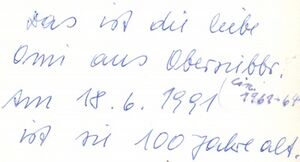 Das ist die liebe
Omi aus Obersiebbr.
Am 18.6.1991
1961-64
ist sie 100 Jahre alt.